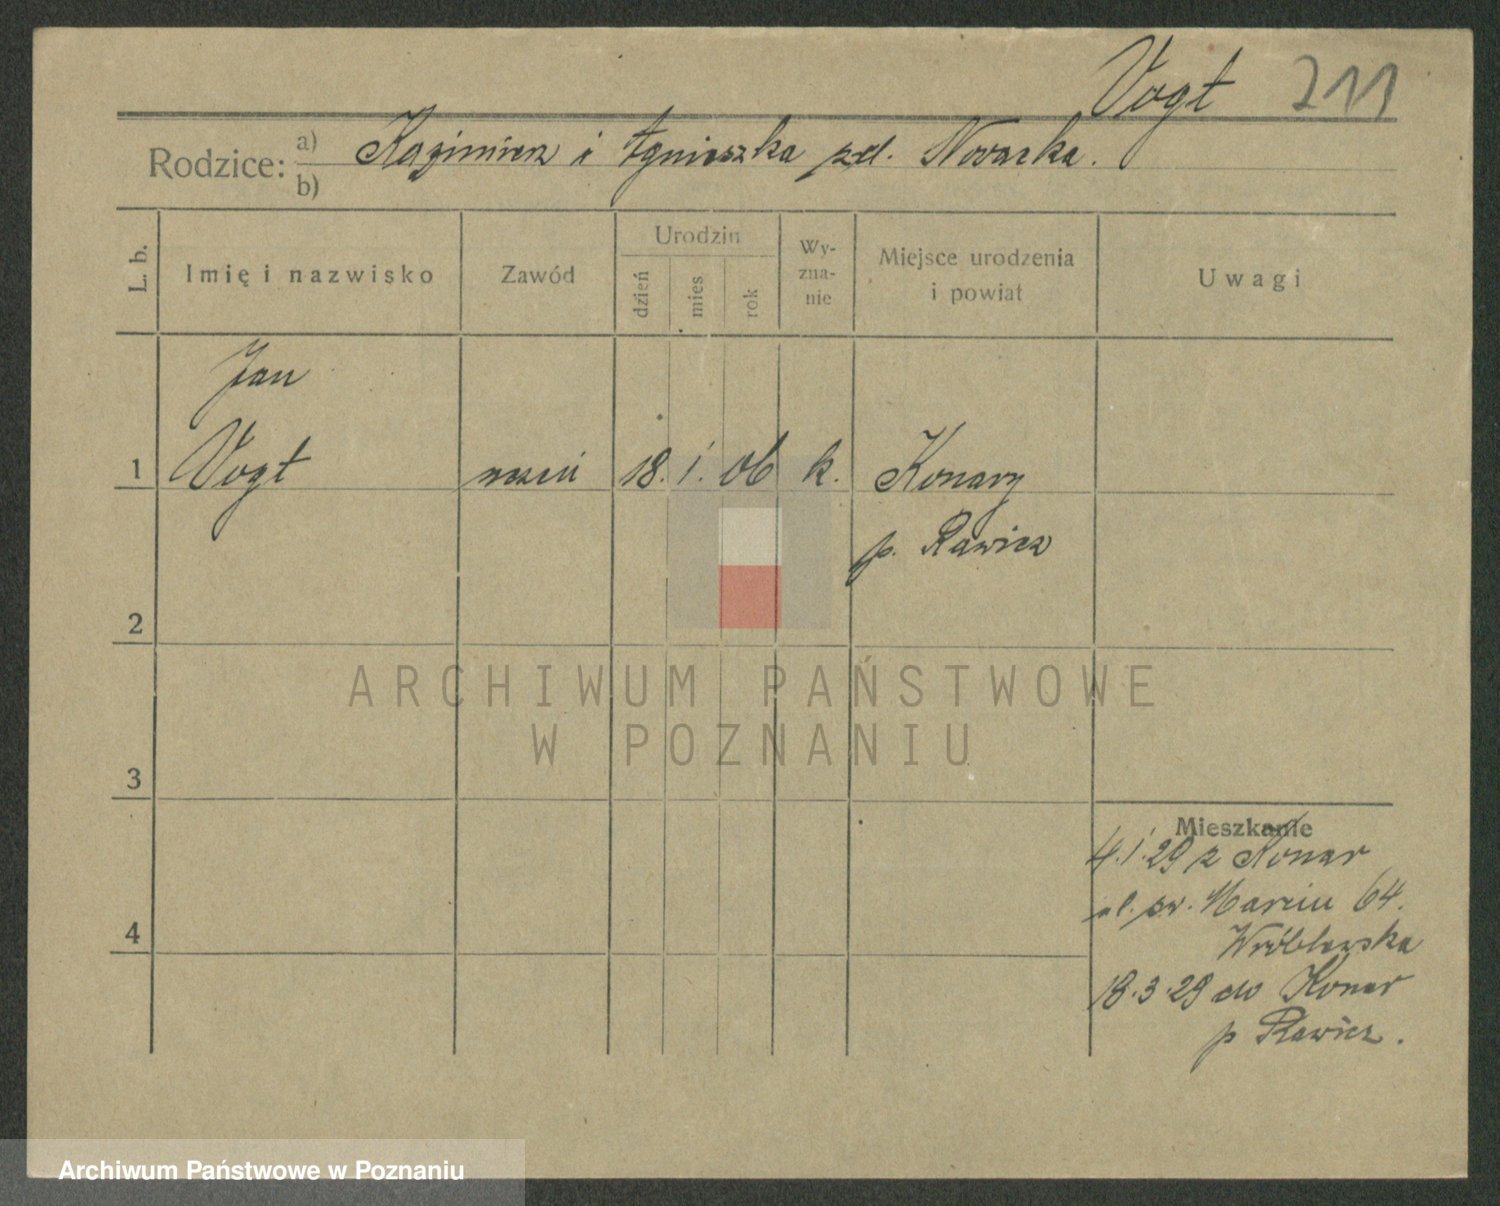 Vogt 211
Rodzice: a) Kazimierz i Agnieszka zd. Nowacka.
b)
L. b. Imię i nazwisko Zawód Urodzin dzień mies rok Wy-zna-nie Miejsce urodzenia i powiat Uwagi
Jan
1 Vogt uczeń 18. 1. 06 k. Konary
p. Rawicz
2
ARCHIWUM PAŃSTWOWE
W POZNANIU
3
Mieszkanie
4.1.29 z Konar
ul. św. Marcin 64.
4 Wróblewska
18.3.29 do Konar
p Rawicz.
Archiwum Państwowe w Poznaniu